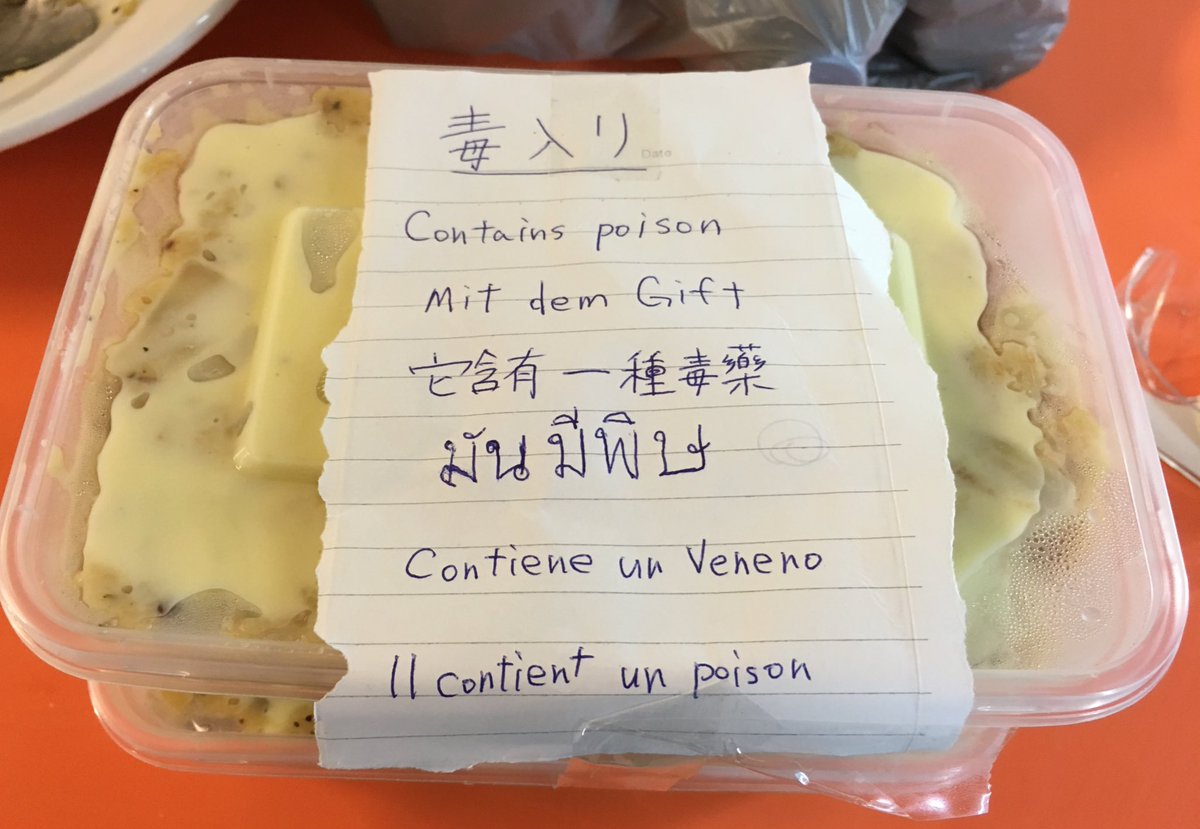 毒入り
Date
Contains poison
Mit dem Gift
它含有一種毒藥
มันมีพิษ
Contiene un Veneno
Il contient un poison